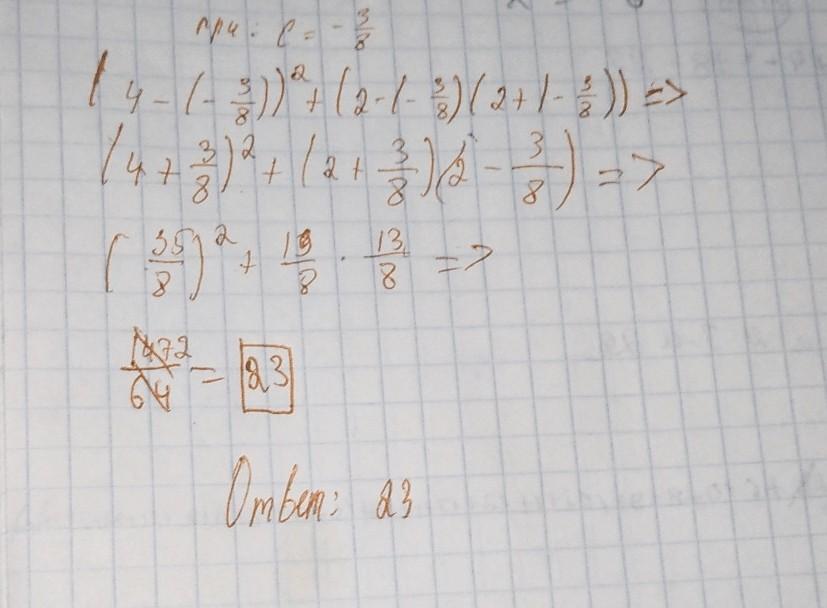 при: c = -3/8
(4-(-3/8))²+(2-(-3/8)(2+(-3/8)) =>
(4+3/8)²+(2+3/8)(2-3/8) =>
(35/8)²+19/8·13/8 =>
1472/64 = 23
Ответ: 23